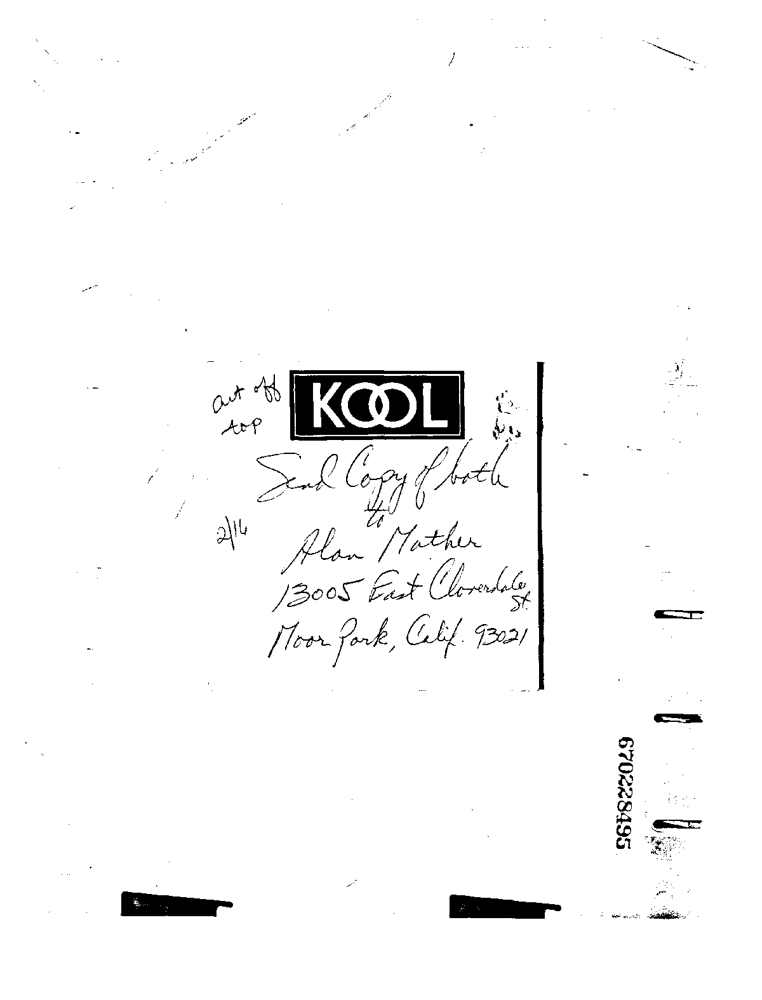 cut off
top
KOOL
Send Copy of both
to
2/16
Alan Mather
13005 East Cloverdale
St.
Moor Park, Calif. 93021
670228495